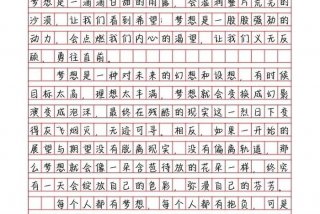 梦想是一滴滴的雨露，会滋润整片荒芜的
沙漠，让我们看到希望；梦想是一股股强劲的
动力，会点燃我们内心的渴望，让我们义无反
顾，勇往直前。
梦想是一种对未来的幻想和设想，有时候
目标太高，理想太丰满，梦想就会变换成幻影
演变成泡沫，最终在残酷的现实这一烈日下变
得灰飞烟灭，无迹可寻。相反，如果一开始的
展望与期望没有脱离现实，没有偏离轨道，那
么梦想就会像一朵含苞待放的花朵一样，终究
有一天会绽放自己的色彩，弥漫自己的芬芳。
每个人都有梦想，每个人都有抱负，可是